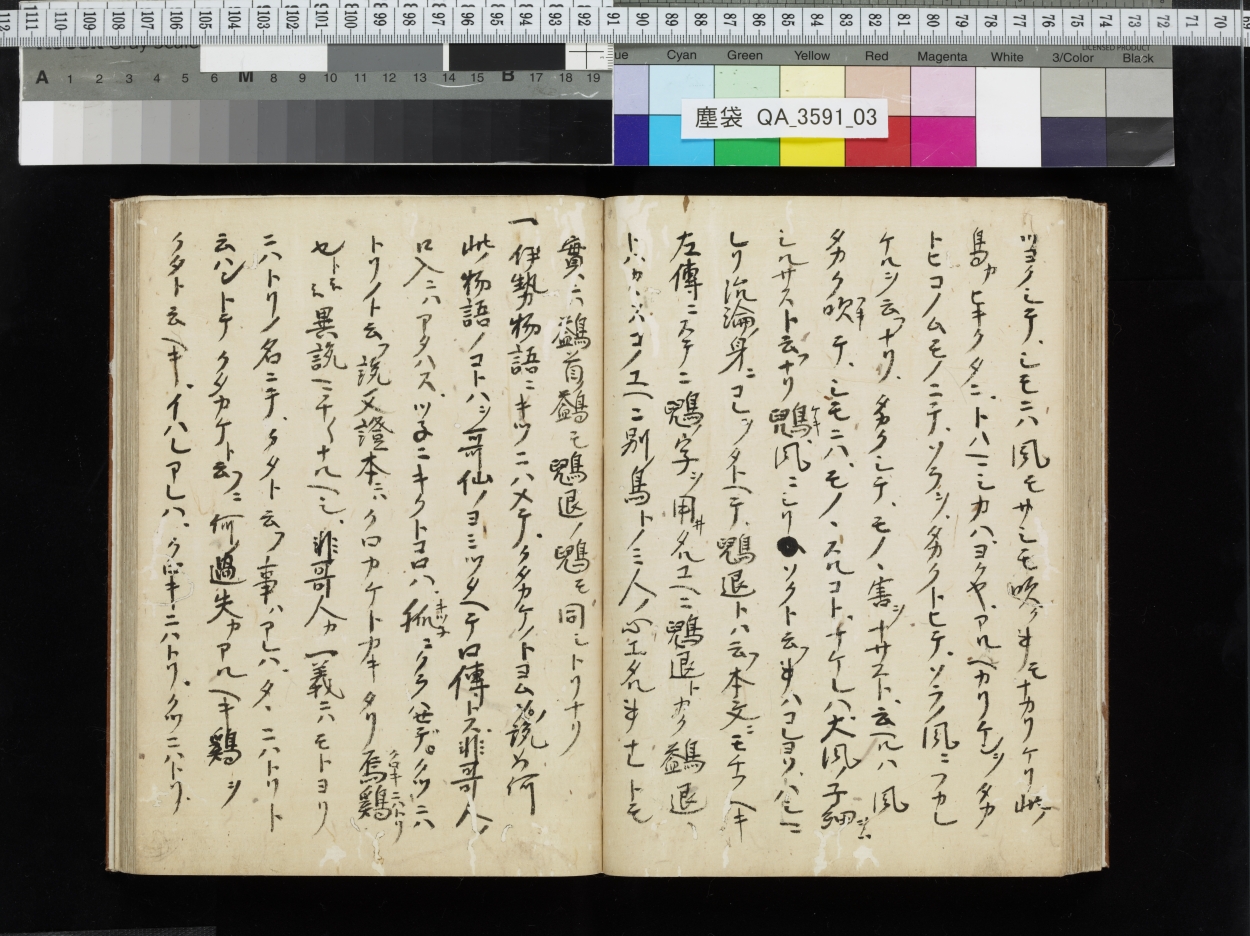 112 111 110 109 108 107 106 105 104 103 102 101 100 99 98 97 96 95 94 93 92 91 90 89 88 87 86 85 84 83 82 81 80 79 78 77 76 75 74 73 72 71 70 69
A 1 2 3 4 5 6 M 8 9 10 11 12 13 14 15 B 17 18 19
Cyan Green Yellow Red Magenta White 3/Color Black
LICENSED PRODUCT
塵袋 QA_3591_03
ツヨクシテ、シモニハ風モサシモ吹事モナカリケリ此ノ
鳥カヒキクタニ、トハヘミシカハヨクヤ、アルヘカリケンヲタカ
トヒコノムモノニテ、ソラヲ、タカクトヒテ、ソラノ風ニフカレ
ケルヲ云フナリ、タカクシテ、モノヽ害ヲナサスト、云ヘルハ風
タカク吹テ、シモニハ、モノヽスルコト、ナケレハ大風ノ子細ヲハ
シルサスト云フナリ鶂風ニヨリソクト云フ事ハコレヨリハシニ
レリ沉淪身ニコレヲタトヘテ、鶂退トハ云フ本文ニモチフヘキ
左傳ニステニ鶂ノ字ヲ用井タルユヘニ鶂退トカク鷁退ヽ
トハカヽスコノユヘニ別ノ鳥トノミ人ノ心エタル事ナレトモ
實ニハ鷁首ノ鷁モ鶂退ノ鶂モ同シトリナリ
一 伊勢物語ニキツニハメテ、クタカケノトヨムノ說如何
此ノ物語ノコトハヲ哥仙ノヨミツタヘテ口傳トス非哥人ノ
口入ニハアタハス、ツネニキクトコロハ、狐ニクラハセデ。クツニハ
トリノト云フ說又證本ニハクロカケトカキタリ烏鷄
也ト云々異說ヘチヘチナルヘシ、非哥人カ一義ニハモトヨリ
ニハトリノ名ニテ、クタト云フ事ハアレハ、タヽニハトリト
云ハントテクタカケト云フニ何ノ過失カアルヘキ鷄ヲ
クタト云ヘキ、イハレアレハ、クロキニハトリ、クツニハトリ、